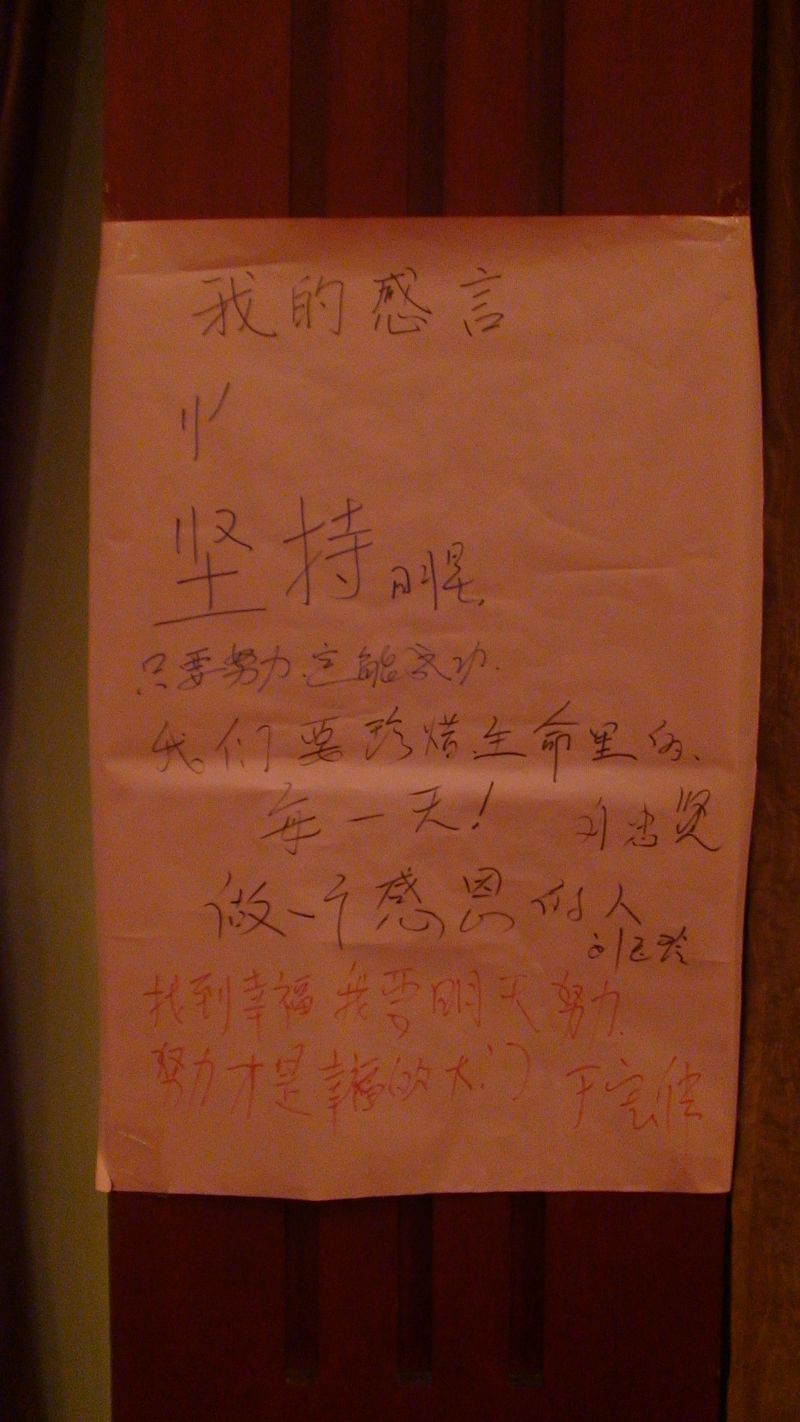 我的感言
坚持 明星
只要努力.定能成功.
我们要珍惜生命里的、
每一天! 刘忠贤
做一个感恩的人
找到幸福 我要明天努力.
努力才是幸福的大门 于宏伟